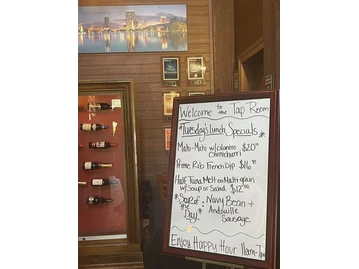 Welcome to the Tap Room
*Tuesday's Lunch Specials*
Mahi-Mahi w/cilantro $20
Chimichurri
Prime Rib French Dip $16
Half Tuna Melt on Multi-grain
w/Soup or Salad $12
*Soup of the Day* : Navy Bean +
Andouille
Sausage
Enjoy Happy Hour 11am-7pm